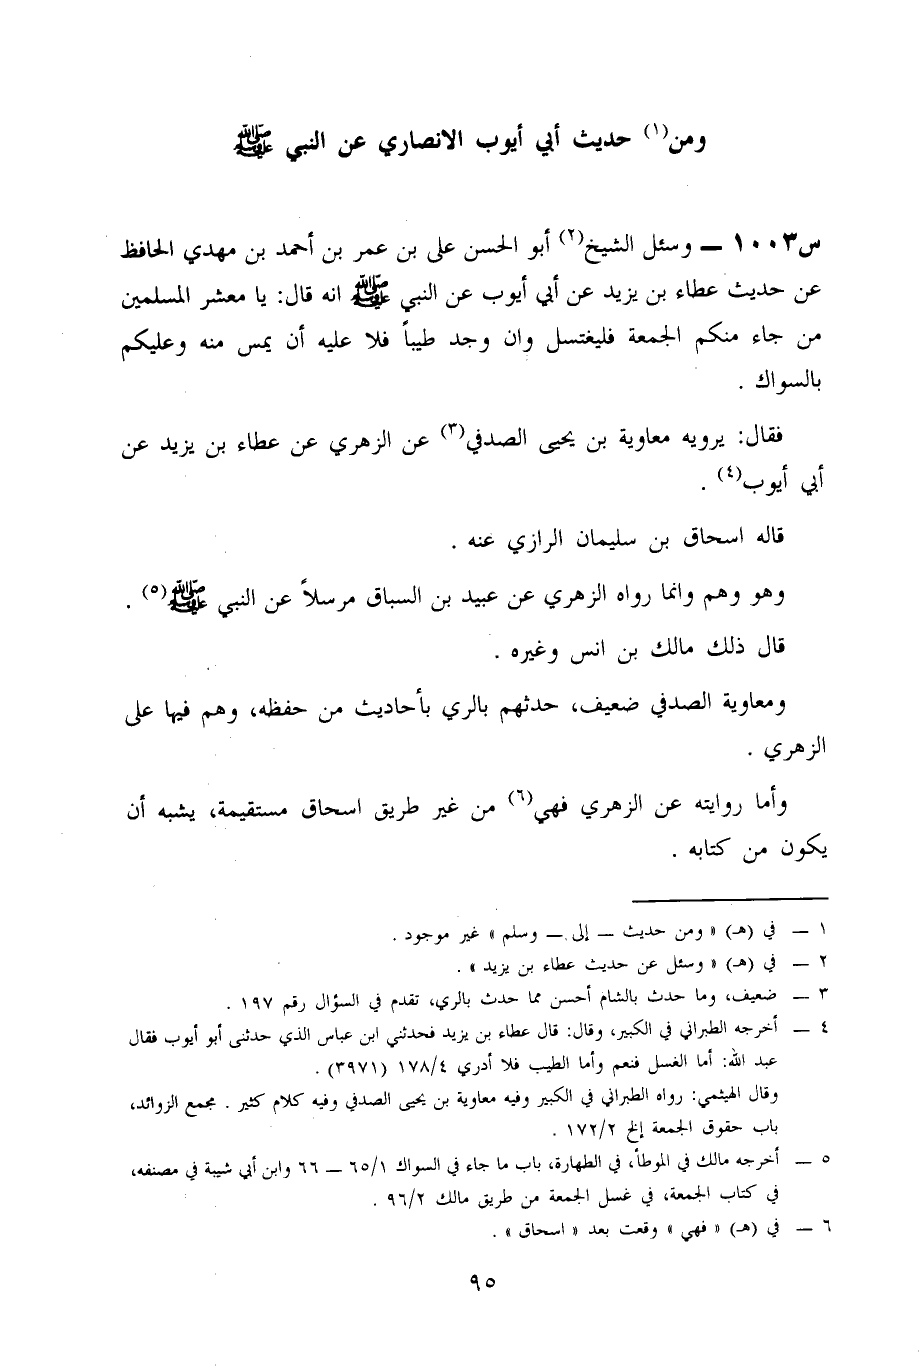 ومن(١) حديث أبي أيوب الانصاري عن النبي ﷺ
س١٠٠٣ ــ وسئل الشيخ(٢) أبو الحسن علي بن عمر بن أحمد بن مهدي الحافظ
عن حديث عطاء بن يزيد عن أبي أيوب عن النبي ﷺ انه قال: يا معشر المسلمين
من جاء منكم الجمعة فليغتسل وان وجد طيباً فلا عليه أن يمس منه وعليكم
بالسواك .
فقال: يرويه معاوية بن يحيى الصدفي(٣) عن الزهري عن عطاء بن يزيد عن
أبي أيوب(٤) .
قاله اسحاق بن سليمان الرازي عنه .
وهو وهم وانما رواه الزهري عن عبيد بن السباق مرسلاً عن النبي ﷺ(٥) .
قال ذلك مالك بن انس وغيره .
ومعاوية الصدفي ضعيف، حدثهم بالري بأحاديث من حفظه، وهم فيها على
الزهري .
وأما روايته عن الزهري فهي(٦) من غير طريق اسحاق مستقيمة، يشبه أن
يكون من كتابه .
١ ــ في (هـ) « ومن حديث ــ إلى ــ وسلم » غير موجود .
٢ ــ في (هـ) « وسئل عن حديث عطاء بن يزيد » .
٣ ــ ضعيف، وما حدث بالشام أحسن مما حدث بالري، تقدم في السؤال رقم ١٩٧ .
٤ ــ أخرجه الطبراني في الكبير، وقال: قال عطاء بن يزيد فحدثني ابن عباس الذي حدثنى أبو أيوب فقال
عبد الله: أما الغسل فنعم وأما الطيب فلا أدري ١٧٨/٤ (٣٩٧١) .
وقال الهيثمي: رواه الطبراني في الكبير وفيه معاوية بن يحيى الصدفي وفيه كلام كثير . مجمع الزوائد،
باب حقوق الجمعة إلخ ١٧٢/٢ .
٥ ــ أخرجه مالك في الموطأ، في الطهارة، باب ما جاء في السواك ٦٥/١ ــ ٦٦ وابن أبي شيبة في مصنفه،
في كتاب الجمعة، في غسل الجمعة من طريق مالك ٩٦/٢ .
٦ ــ في (هـ) « فهي » وقعت بعد « اسحاق » .
٩٥